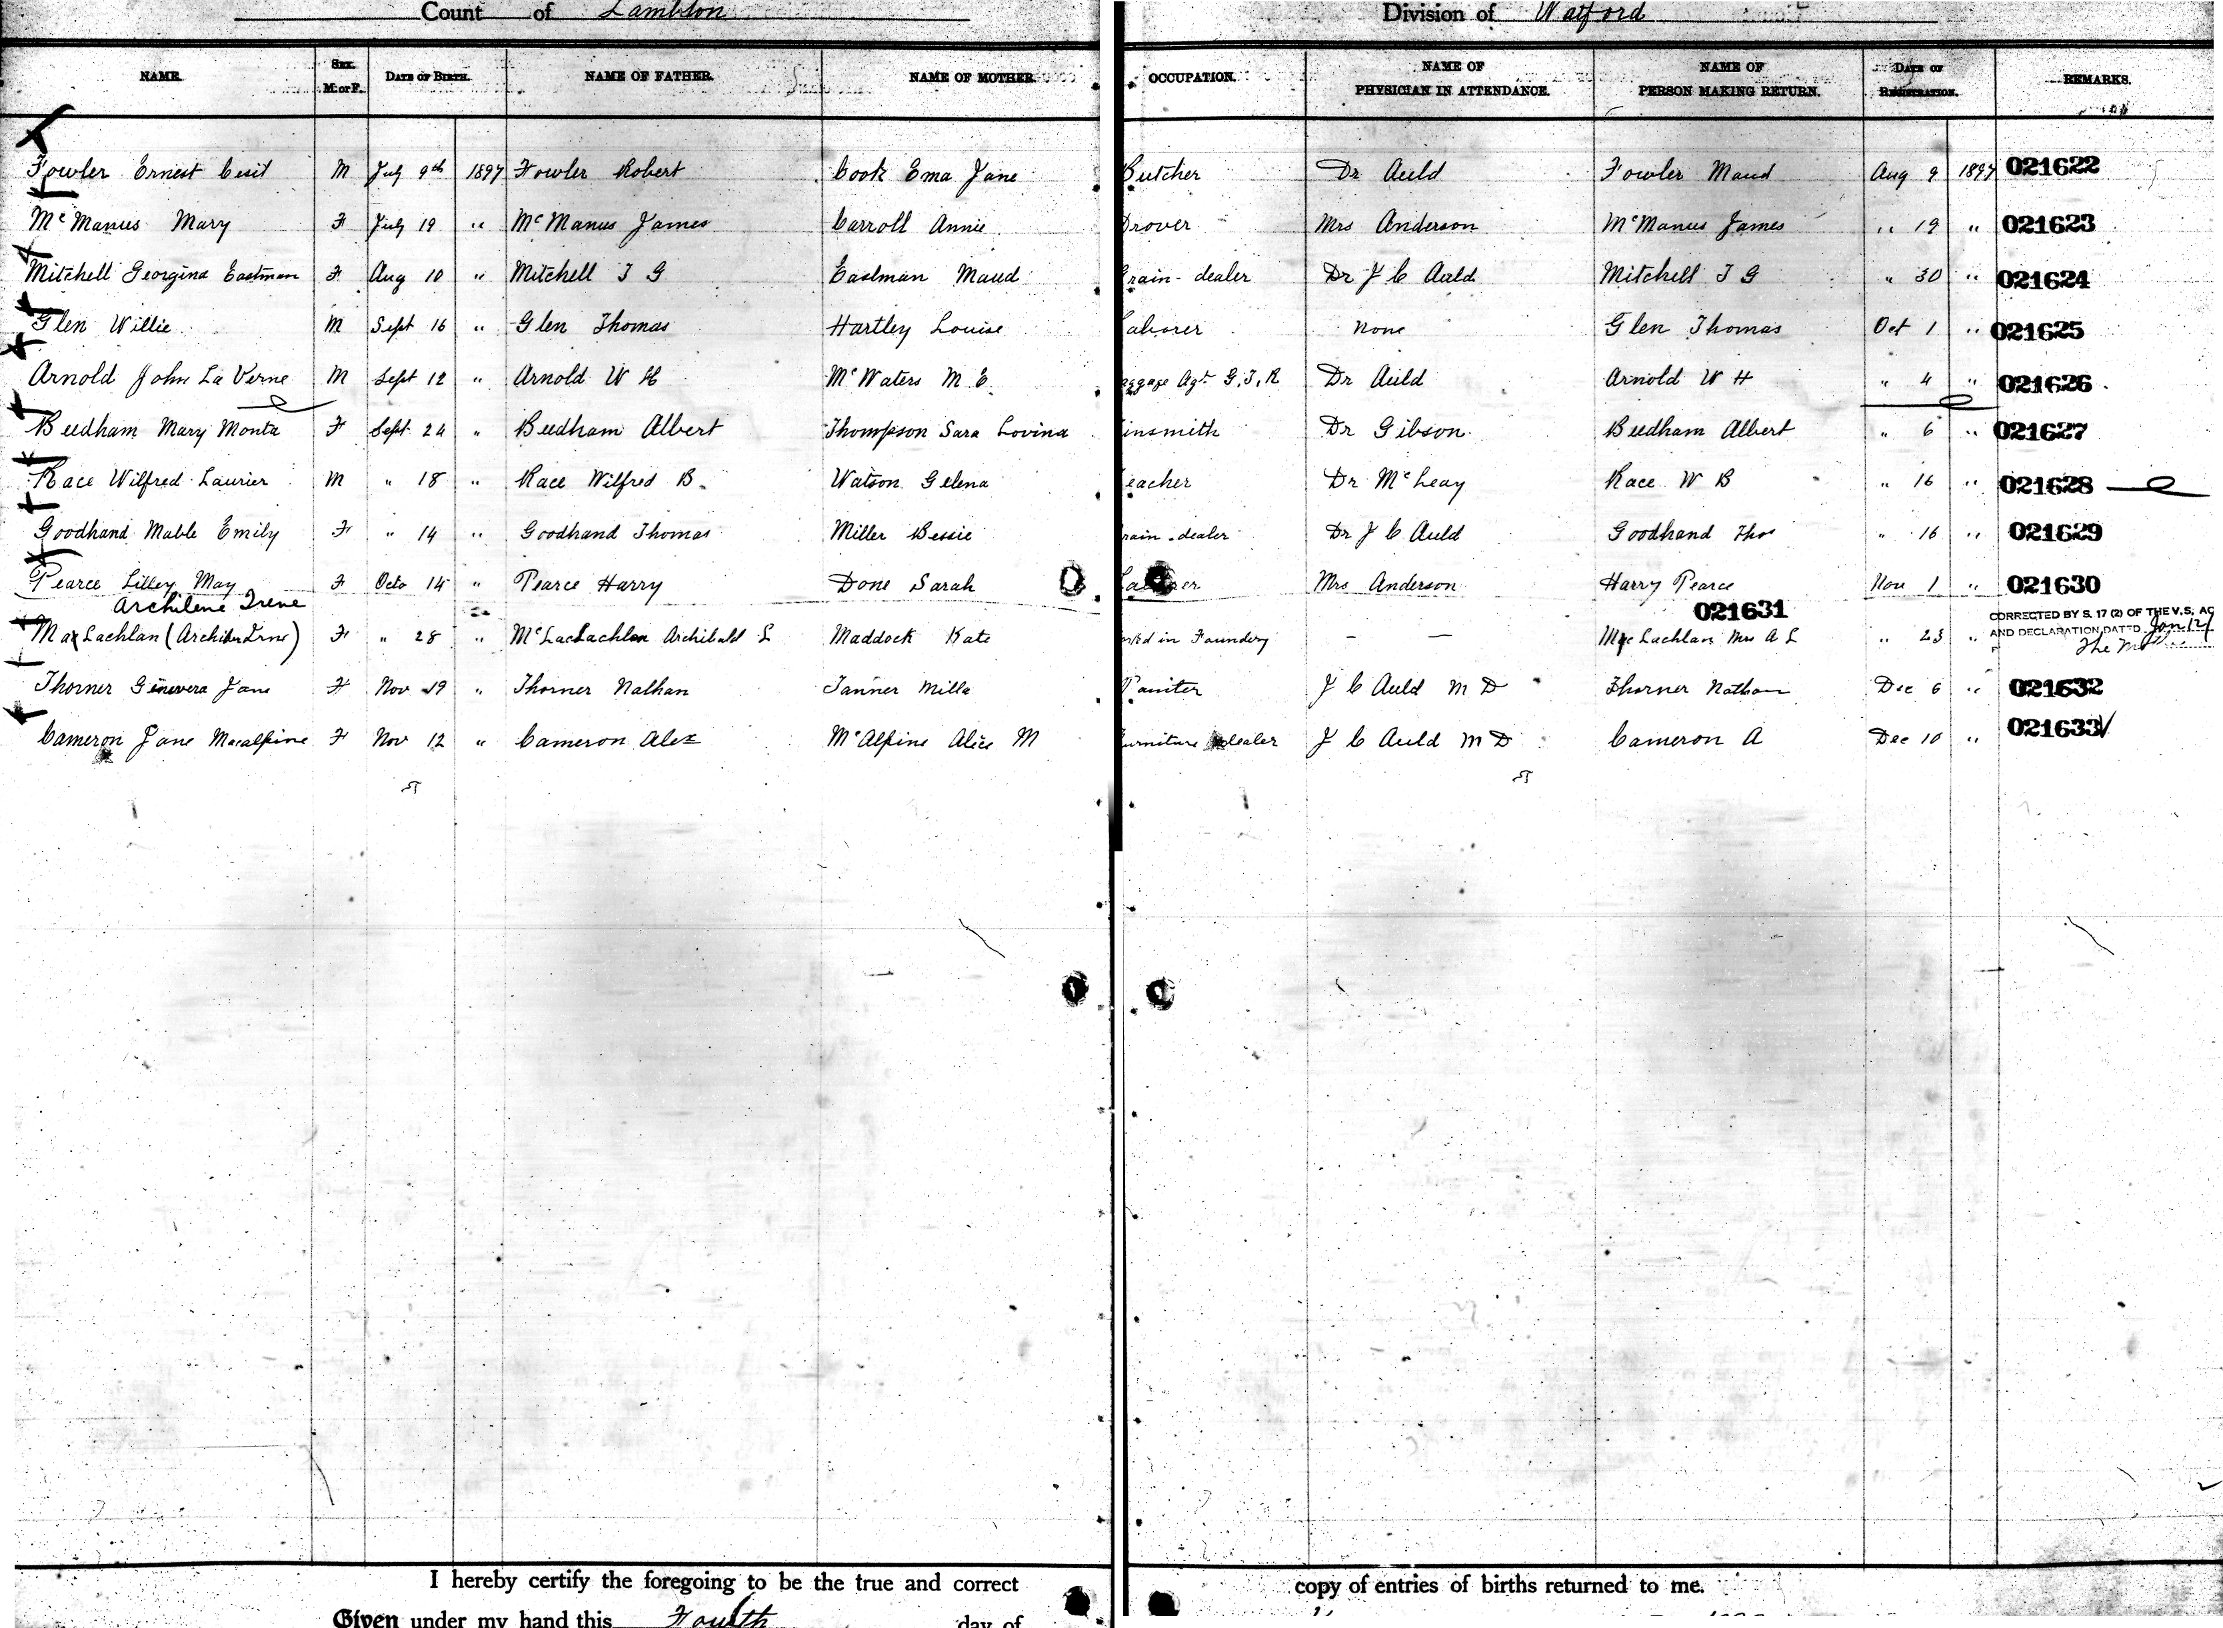 Count of Lambton Division of Watford
NAME. SEX. M. or F. DATE OF BIRTH. NAME OF FATHER. NAME OF MOTHER. OCCUPATION. NAME OF PHYSICIAN IN ATTENDANCE. NAME OF PERSON MAKING RETURN. DATE OF REGISTRATION. REMARKS.
Fowler Ernest Cesil M July 9th 1897 Fowler Robert Cook Ema Jane Butcher Dr Auld Fowler Maud Aug 9 1897 021622
McManus Mary F July 19 " McManus James Carroll Annie Drover Mrs Anderson McManus James " 19 " 021623
Mitchell Georgina Eastman F Aug 10 " Mitchell T G Eastman Maud rain-dealer Dr J C Auld Mitchell T G " 30 " 021624
Glen Willie M Sept 16 " Glen Thomas Hartley Louise Laborer None Glen Thomas Oct 1 " 021625
Arnold John La Verne M Sept 12 " Arnold W H McWaters M E. aggage Agt G.T.R Dr Auld Arnold W H " 4 " 021626
Beedham Mary Monta F Sept 24 " Beedham Albert Thompson Sara Lovina insmith Dr Gibson Beedham Albert " 6 " 021627
Race Wilfred Laurier M " 18 " Race Wilfred B. Watson Gelena eacher Dr McLeay Race W B " 16 " 021628
Goodhand Mable Emily F " 14 " Goodhand Thomas Miller Bessie rain-dealer Dr J C Auld Goodhand Thos " 16 " 021629
Pearce Lilley May F Octo 14 " Pearce Harry Done Sarah Mrs Anderson Harry Pearce Nov 1 " 021630
Archilene Irene 021631 CORRECTED BY S. 17 (2) OF THE V.S. AC
MacLachlan (Archilene Irene) F " 28 " McLachlan Archibald L Maddock Kate rked in Foundery — — MacLachlan Mrs A L " 23 " AND DECLARATION DATED Jan 12/
Thorner Ginevera Jane F Nov 19 " Thorner Nathan Tanner Milla Paniter J C Auld M D Thorner Nathan Dec 6 " 021632
Cameron Jane Macalpine F Nov 12 " Cameron Alex McAlpine Alice M urniture dealer J C Auld M D Cameron A Dec 10 " 021633
I hereby certify the foregoing to be the true and correct copy of entries of births returned to me.
Given under my hand this Fourth day of